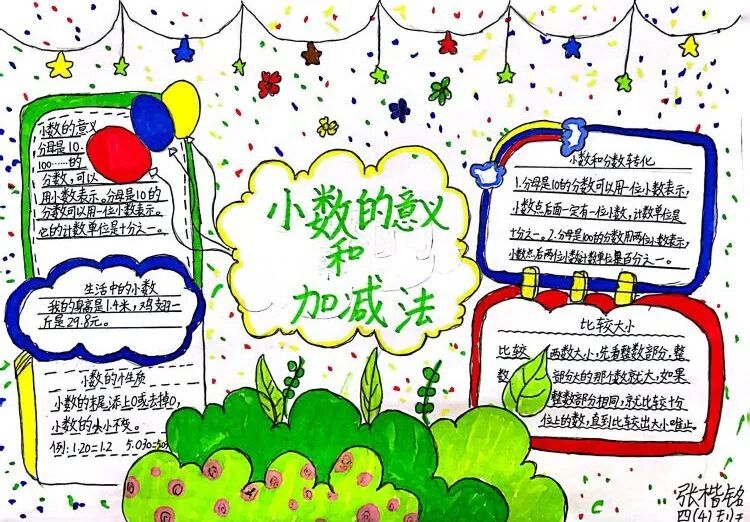 小数的意义
和
加减法
小数的意义
分母是10.
100……的
分数,可以
用小数表示。分母是10的
分数可以用一位小数表示。
它的计数单位是十分之一。
生活中的小数
我的身高是1.4米,鸡翅一
斤是29.8元。
小数的性质
小数的末尾添上0或去掉0,
小数的大小不变。
例:1.20=1.2
小数和分数转化
1.分母是10的分数可以用一位小数表示,
小数点后面一定有一位小数,计数单位是
十分之一。2.分母是100的分数用两位小数表示,
小数点后两位小数计数单位是百分之一。
比较大小
比较两数大小,先看整数部分,整
数部分大的那个数就大,如果
整数部分相同,就比较十分
位上的数,直到比较出大小为止
张楷铭
四(4)